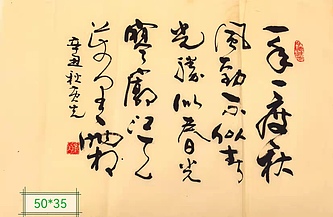 一年一度秋
风劲不似春
光胜似春光
寥廓江天
万里霜
辛丑秋
50*35